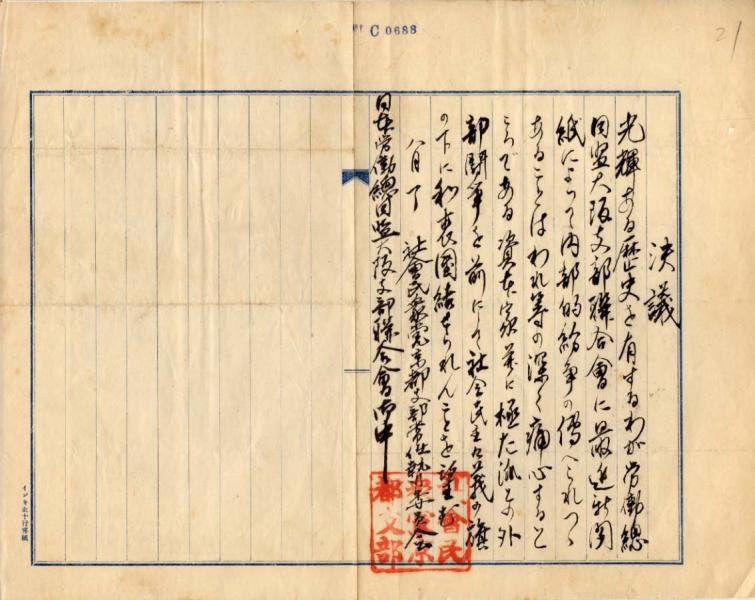 C 0688
21
決議
光輝ある歴史を有するわが労働總
同盟大阪支部聯合會に最近新聞
紙によつて内部的紛争の傳へられつゝ
あることはわれ等の深く痛心すると
ころである資本家並に極左派との外
部闘争を前にして社会民主々義の旗
の下に和衷團結せられんことを望む
八月 日
社會民衆党京都支部常任執行委員会
日本労働總同盟大阪支部聯合會御中
社會民
衆黨京
都支部